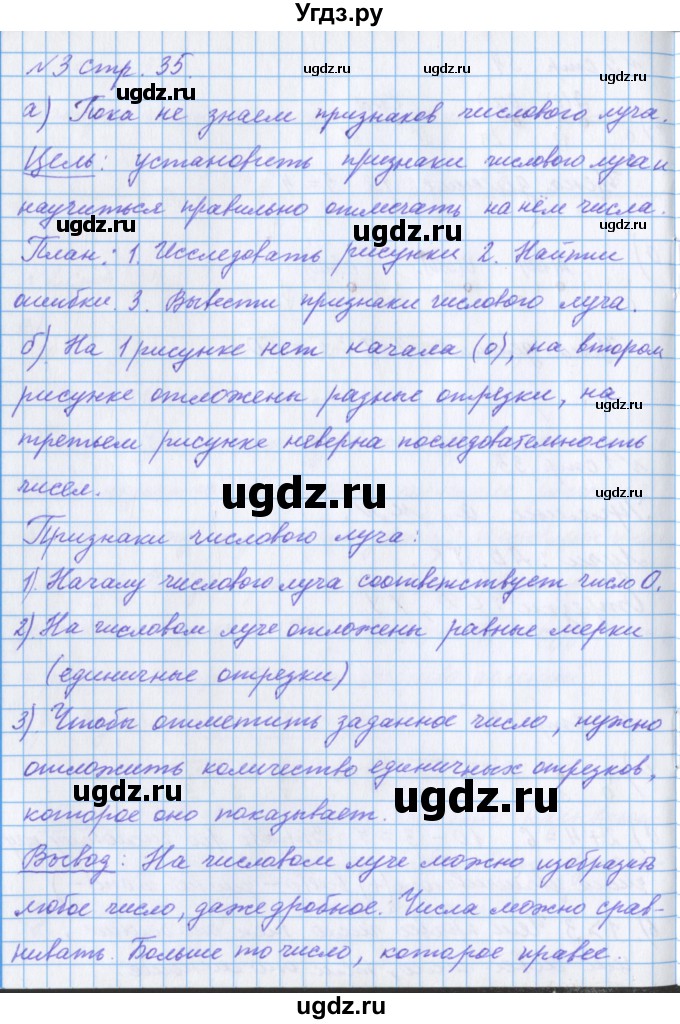 Угдз.ру
№3 стр. 35.
ugdz.ru ugdz.ru
ugdz.ru
а) Пока не знаем признаков числового луча.
Цель: установить признаки числового луча и
ugdz.ru
научиться правильно отмечать на нём числа.
ugdz.ru ugdz.ru
План: 1. Исследовать рисунки 2. Найти
ошибки. 3. Вывести признаки числового луча.
б) На 1 рисунке нет начала (0), на втором
рисунке отложены разные отрезки, на
ugdz.ru
третьем рисунке неверна последовательность
чисел.
ugdz.ru ugdz.ru
Признаки числового луча:
1). Началу числового луча соответствует число 0.
2) На числовом луче отложены равные мерки
ugdz.ru
(единичные отрезки)
3). Чтобы отметить заданное число, нужно
отложить количество единичных отрезков,
ugdz.ru ugdz.ru
которое оно показывает.
Вывод: На числовом луче можно изобразить
любое число, даже дробное. Числа можно срав-
ugdz.ru
нивать. Больше то число, которое правее.
ugdz.ru